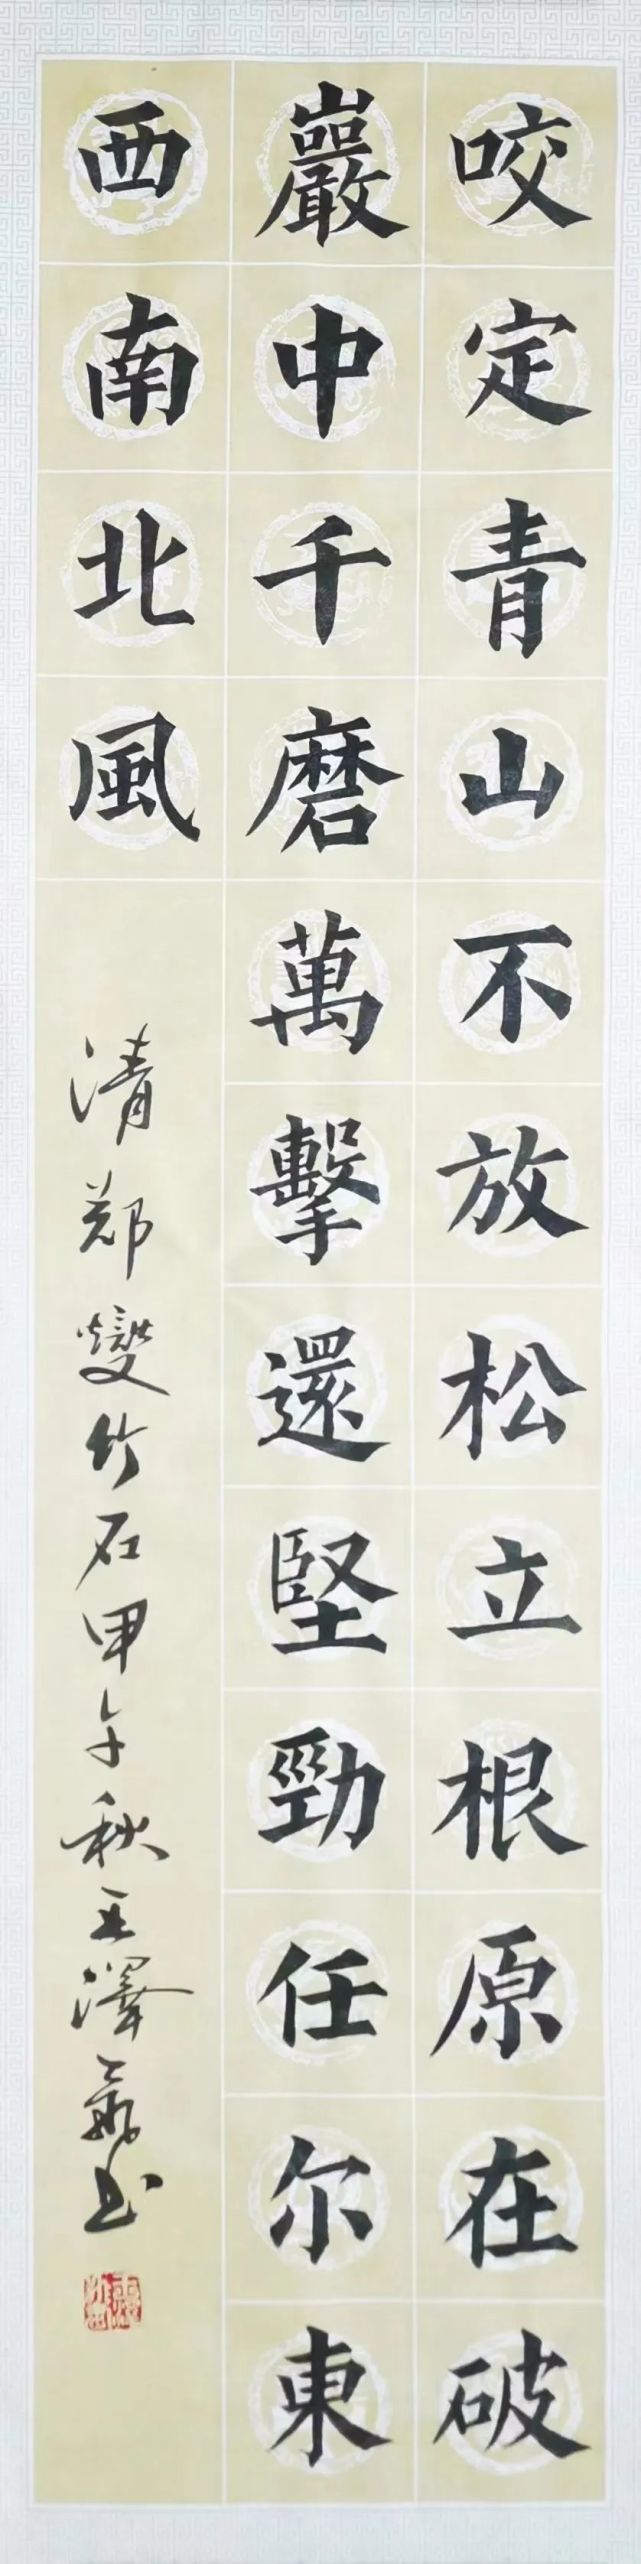 咬定青山不放松立根原在破
巖中千磨萬擊還堅勁任尔東
西南北風
清郑燮竹石甲午秋王澤書